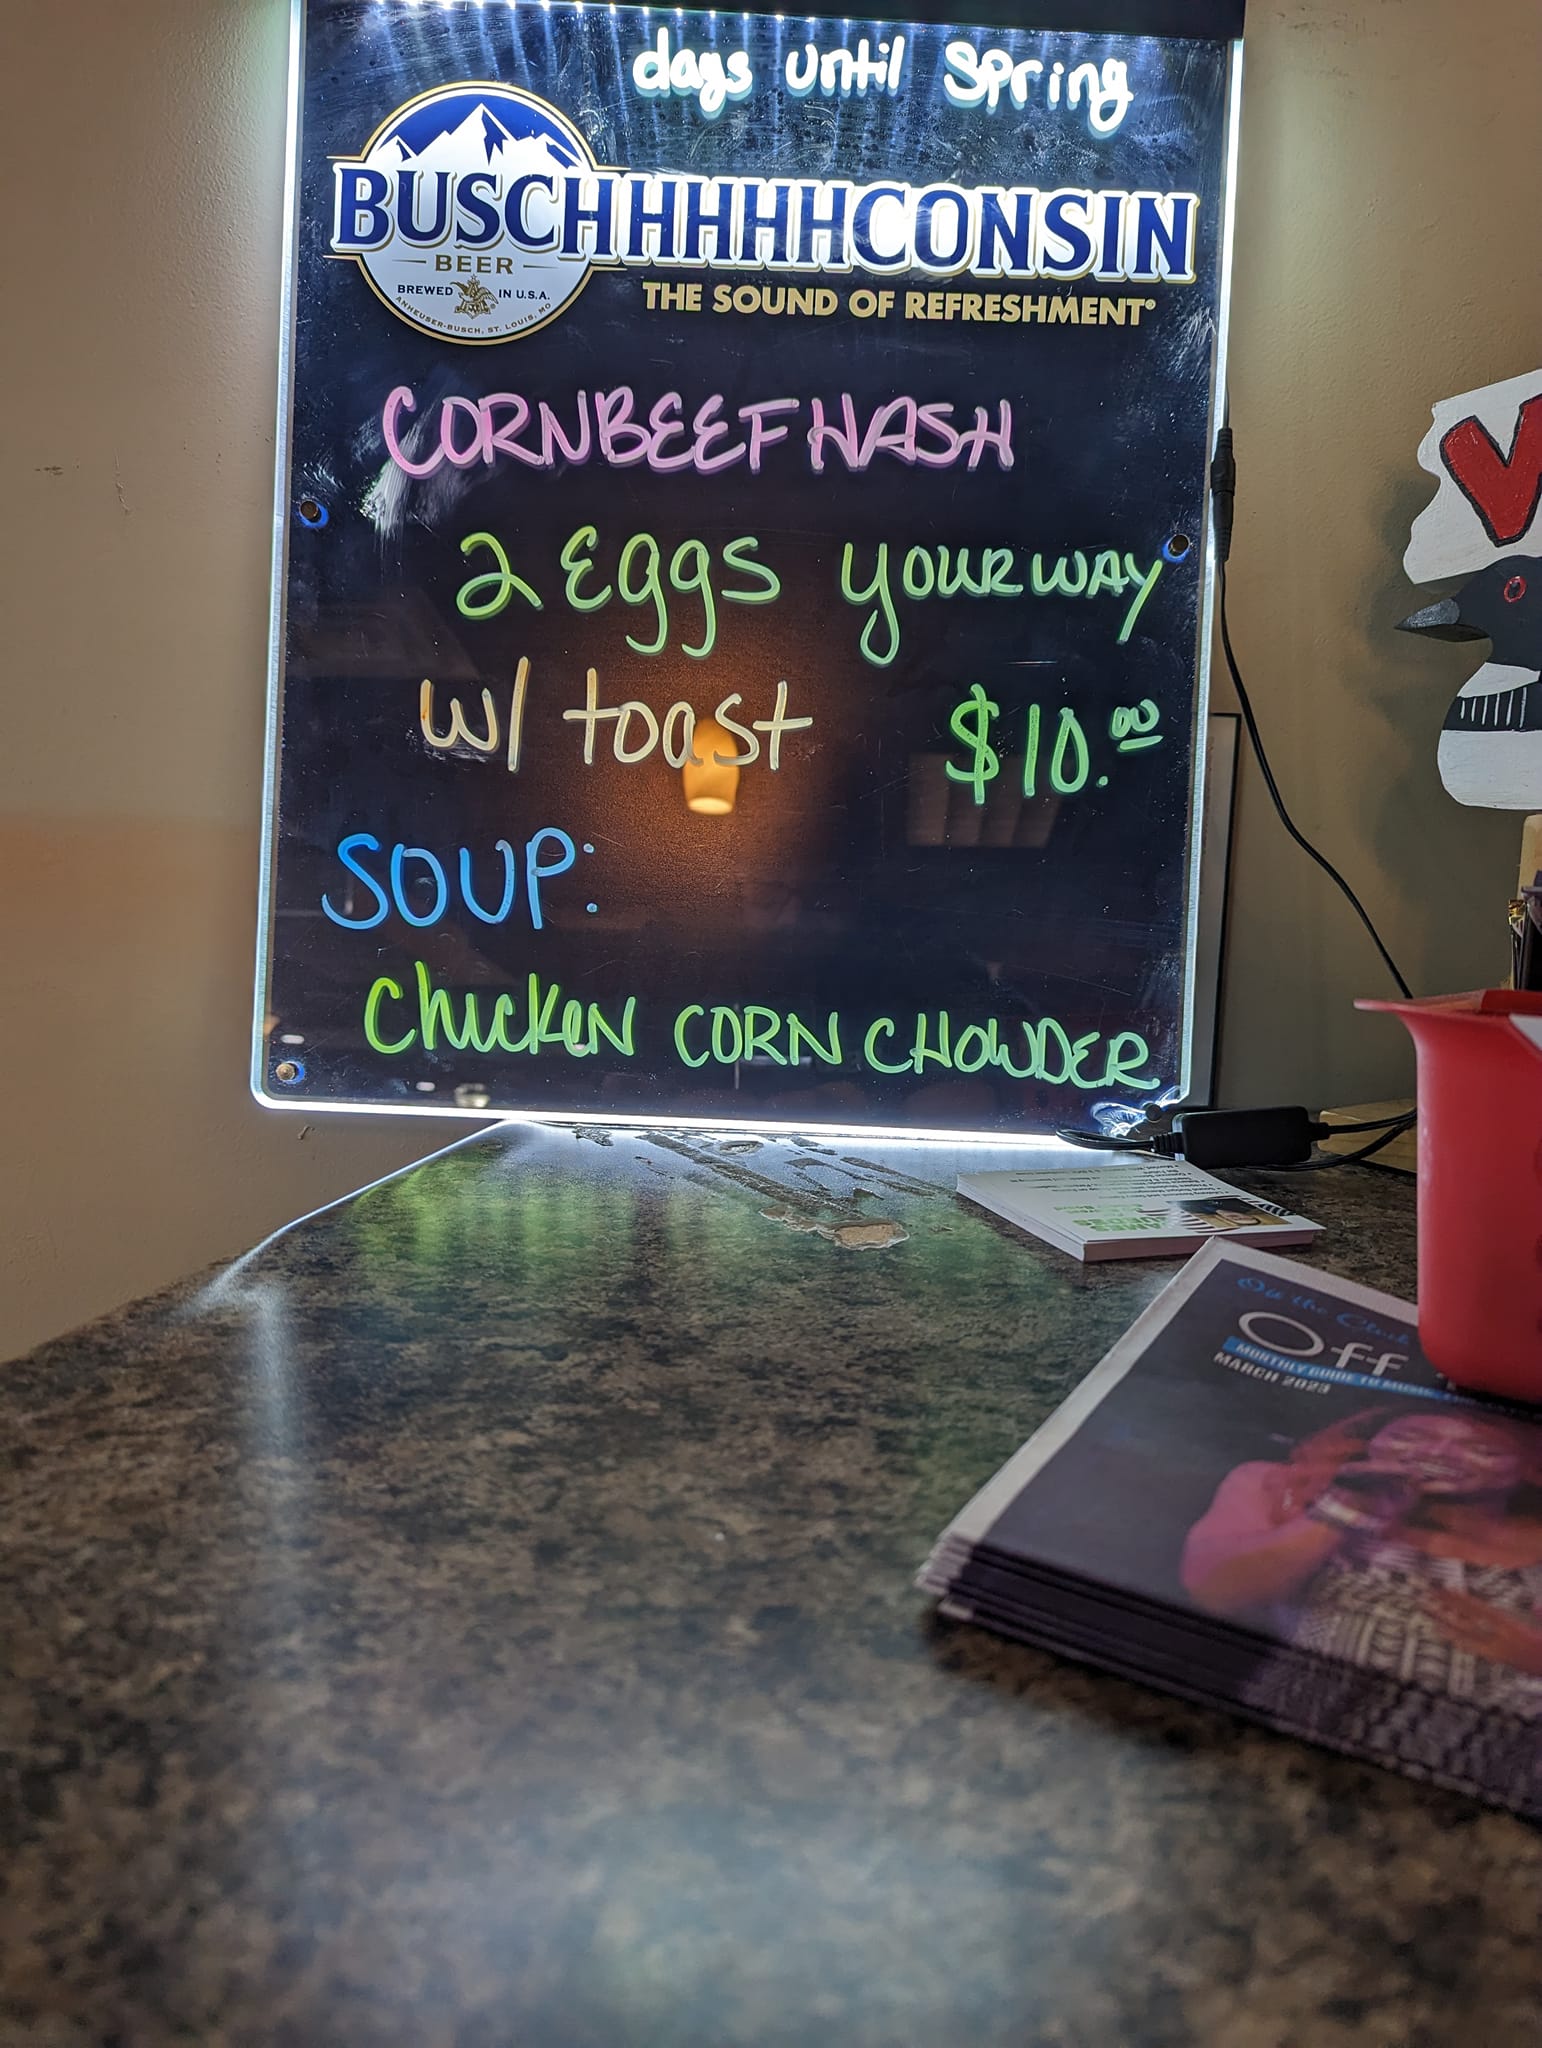 days until Spring
BUSCHHHHHCONSIN
BEER
BREWED IN U.S.A.
ANHEUSER-BUSCH, ST. LOUIS, MO
THE SOUND OF REFRESHMENT®
CORNBEEF HASH
2 Eggs YOUR WAY
w/ toast $10.00
SOUP:
Chicken CORN CHOWDER
V
Off the Clock
Off
MONTHLY GUIDE TO MUSIC
MARCH 2023